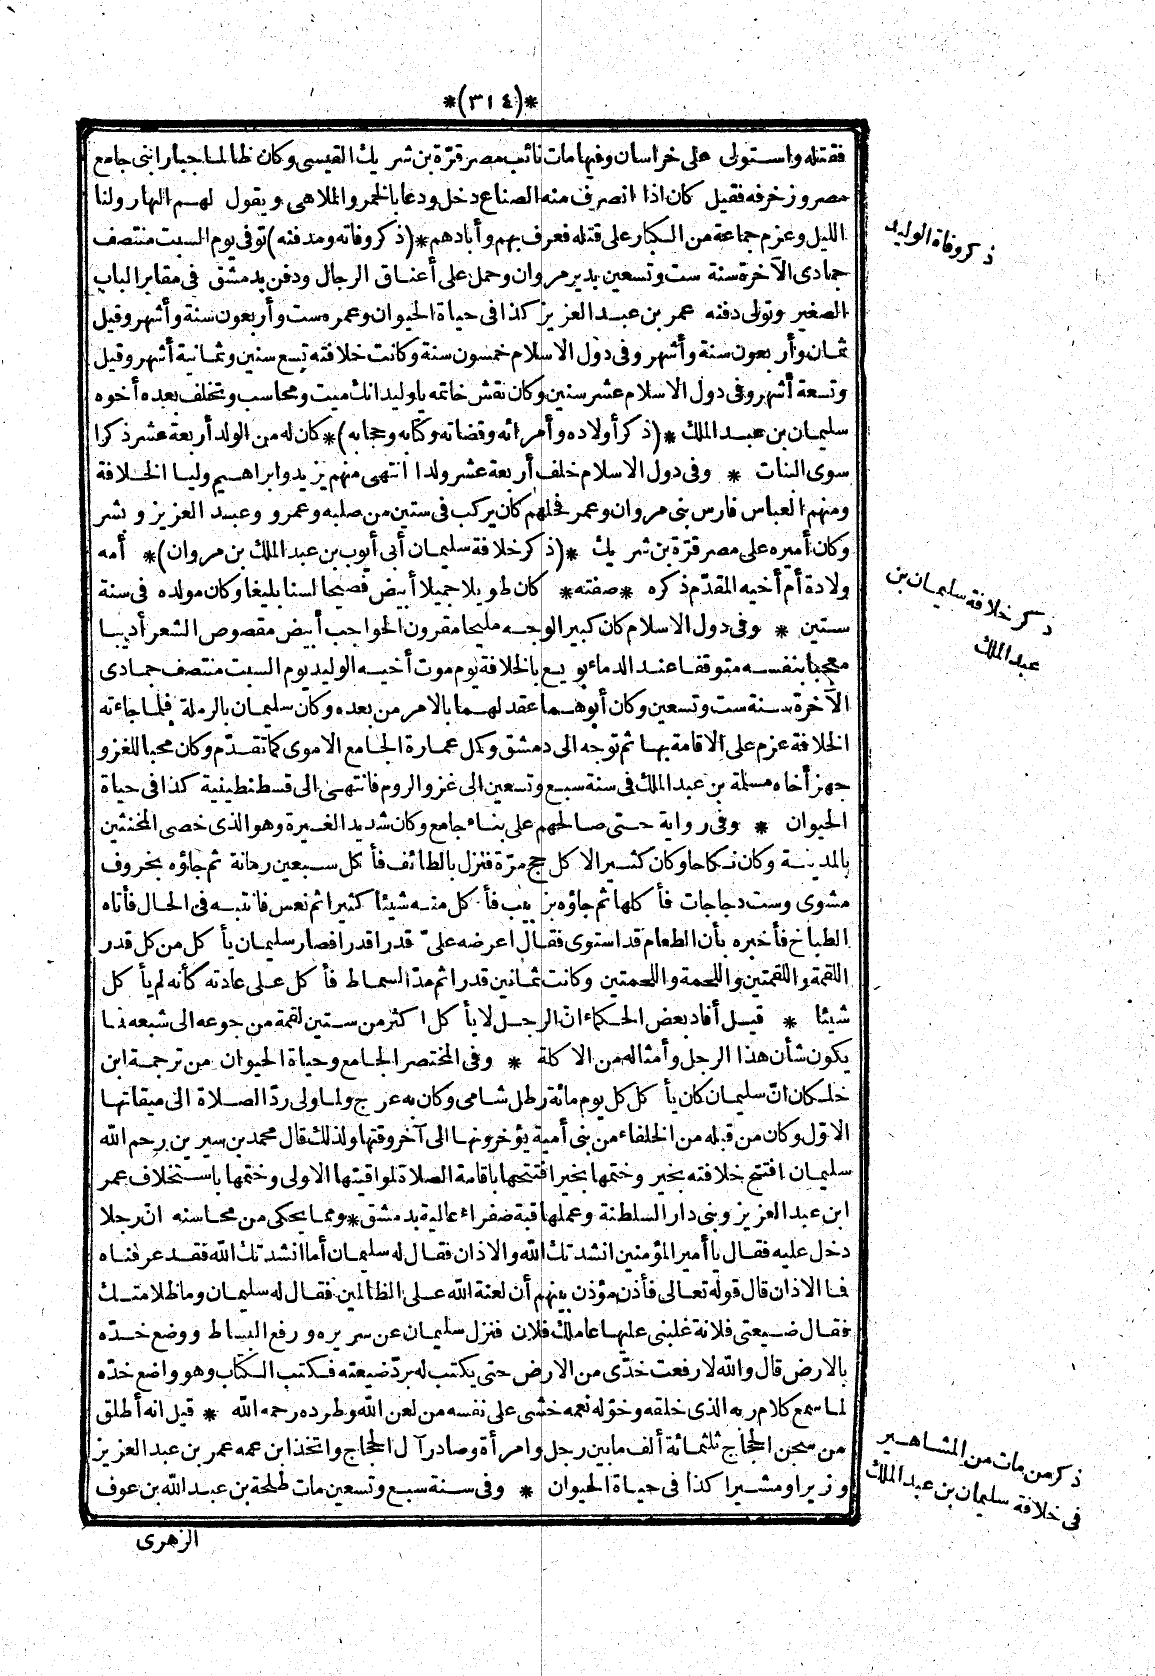 *(٣١٤)*
فقتله واستولى على خراسان وفيها مات نائب مصر قرّة بن شريك القيسى وكان ظالما جبارا بنى جامع
مصر وزخرفه فقيل كان اذا انصرف منه الصناع دخل ودعا بالخمر والملاهى ويقول لهم النهار ولنا
الليل وعزم جماعة من الكبار على قتله فعرف بهم وأبادهم *(ذكر وفاته ومدفنه)* توفى يوم السبت منتصف
جمادى الآخرة سنة ست وتسعين بدير مروان وحمل على أعناق الرجال ودفن بدمشق فى مقابر الباب
الصغير وتولى دفنه عمر بن عبد العزيز كذا فى حياة الحيوان وعمره ست وأربعون سنة وأشهر وقيل
ثمان وأربعون سنة وأشهر وفى دول الاسلام خمسون سنة وكانت خلافته تسع سنين وثمانية أشهر وقيل
وتسعة أشهر وفى دول الاسلام عشر سنين وكان نقش خاتمه ياوليد انك ميت ومحاسب وتخلف بعده أخوه
سليمان بن عبد الملك *(ذكر أولاده وأمرائه وقضاته وكتابه وحجابه)* كان له من الولد أربعة عشر ذكرا
سوى البنات * وفى دول الاسلام خلف أربعة عشر ولدا انتهى منهم يزيد وابراهيم وليا الخلافة
ومنهم العباس فارس بنى مروان وعمر فحلهم كان يركب فى ستين من صلبه وعمرو وعبد العزيز وبشر
وكان أميره على مصر قرّة بن شريك *(ذكر خلافة سليمان أبى أيوب بن عبد الملك بن مروان)* أمه
ولادة أم أخيه المقدّم ذكره *صفته* كان طويلا جميلا أبيض فصيحا لسنا بليغا وكان مولده فى سنة
ستين * وفى دول الاسلام كان كبير الوجه مليحا مقرون الحواجب أبيض مقصوص الشعر أديبا
معجبا بنفسه متوقفا عند الدماء بويع بالخلافة يوم موت أخيه الوليد يوم السبت منتصف جمادى
الآخرة سنة ست وتسعين وكان أبوهما عقد لهما بالامر من بعده وكان سليمان بالرملة فلما جاءته
الخلافة عزم على الاقامة بها ثم توجه الى دمشق وكمل عمارة الجامع الاموى كما تقدّم وكان محبا للغزو
جهز أخاه مسلمة بن عبد الملك فى سنة سبع وتسعين الى غزو الروم فانتهى الى قسطنطينية كذا فى حياة
الحيوان * وفى رواية حتى صالحهم على بناء جامع وكان شديد الغيرة وهو الذى خصى المخنثين
بالمدينة وكان نكاحا وكان كثير الاكل حج مرّة فنزل بالطائف فأكل سبعين رمانة ثم جاؤه بخروف
مشوى وست دجاجات فأكلها ثم جاؤه بزبيب فأكل منه شيئا كثيرا ثم نعس فانتبه فى الحال فأتاه
الطباخ فأخبره بأن الطعام قد استوى فقال اعرضه علىّ قدرا قدرا فصار سليمان يأكل من كل قدر
اللقمة واللقمتين واللحمة واللحمتين وكانت ثمانين قدرا ثم مدّ السماط فأكل على عادته كأنه لم يأكل
شيئا * قيل أفاد بعض الحكماء انّ الرجل لا يأكل اكثر من ستين لقمة من جوعه الى شبعه فما
يكون شأن هذا الرجل وأمثاله من الاكلة * وفى المختصر الجامع وحياة الحيوان من ترجمة ابن
خلكان انّ سليمان كان يأكل كل يوم مائة رطل شامى وكان به عرج ولما ولى ردّ الصلاة الى ميقاتها
الاوّل وكان من قبله من الخلفاء من بنى أمية يؤخرونها الى آخر وقتها ولذلك قال محمد بن سيرين رحم الله
سليمان افتتح خلافته بخير وختمها بخير افتتحها باقامة الصلاة لمواقيتها الاولى وختمها باستخلاف عمر
ابن عبد العزيز وبنى دار السلطنة وعملها قبة صفراء عالية بدمشق * ومما يحكى من محاسنه انّ رجلا
دخل عليه فقال يا أمير المؤمنين انشدتك الله والاذان فقال له سليمان أما انشدتك الله فقد عرفناه
فما الاذان قال قوله تعالى فأذن مؤذن بينهم أن لعنة الله على الظالمين فقال له سليمان وما ظلامتك
فقال ضيعتى فلانة غلبنى عليها عاملك فلان فنزل سليمان عن سريره ورفع البساط ووضع خدّه
بالارض قال والله لا رفعت خدّى من الارض حتى يكتب له بردّ ضيعته فكتب الكتاب وهو واضع خدّه
لما سمع كلام ربه الذى خلقه وخوّله نعمه خشى على نفسه من لعن الله وطرده رحمه الله * قيل انه أطلق
من سجن الحجاج ثلثمائة ألف ما بين رجل وامرأة وصادر آل الحجاج واتخذ ابن عمه عمر بن عبد العزيز
وزيرا ومشيرا كذا فى حياة الحيوان * وفى سنة سبع وتسعين مات طلحة بن عبد الله بن عوف
الزهرى
ذكر وفاة الوليد
ذكر خلافة سليمان بن
عبد الملك
ذكر من مات من المشاهير
فى خلافة سليمان بن عبد الملك